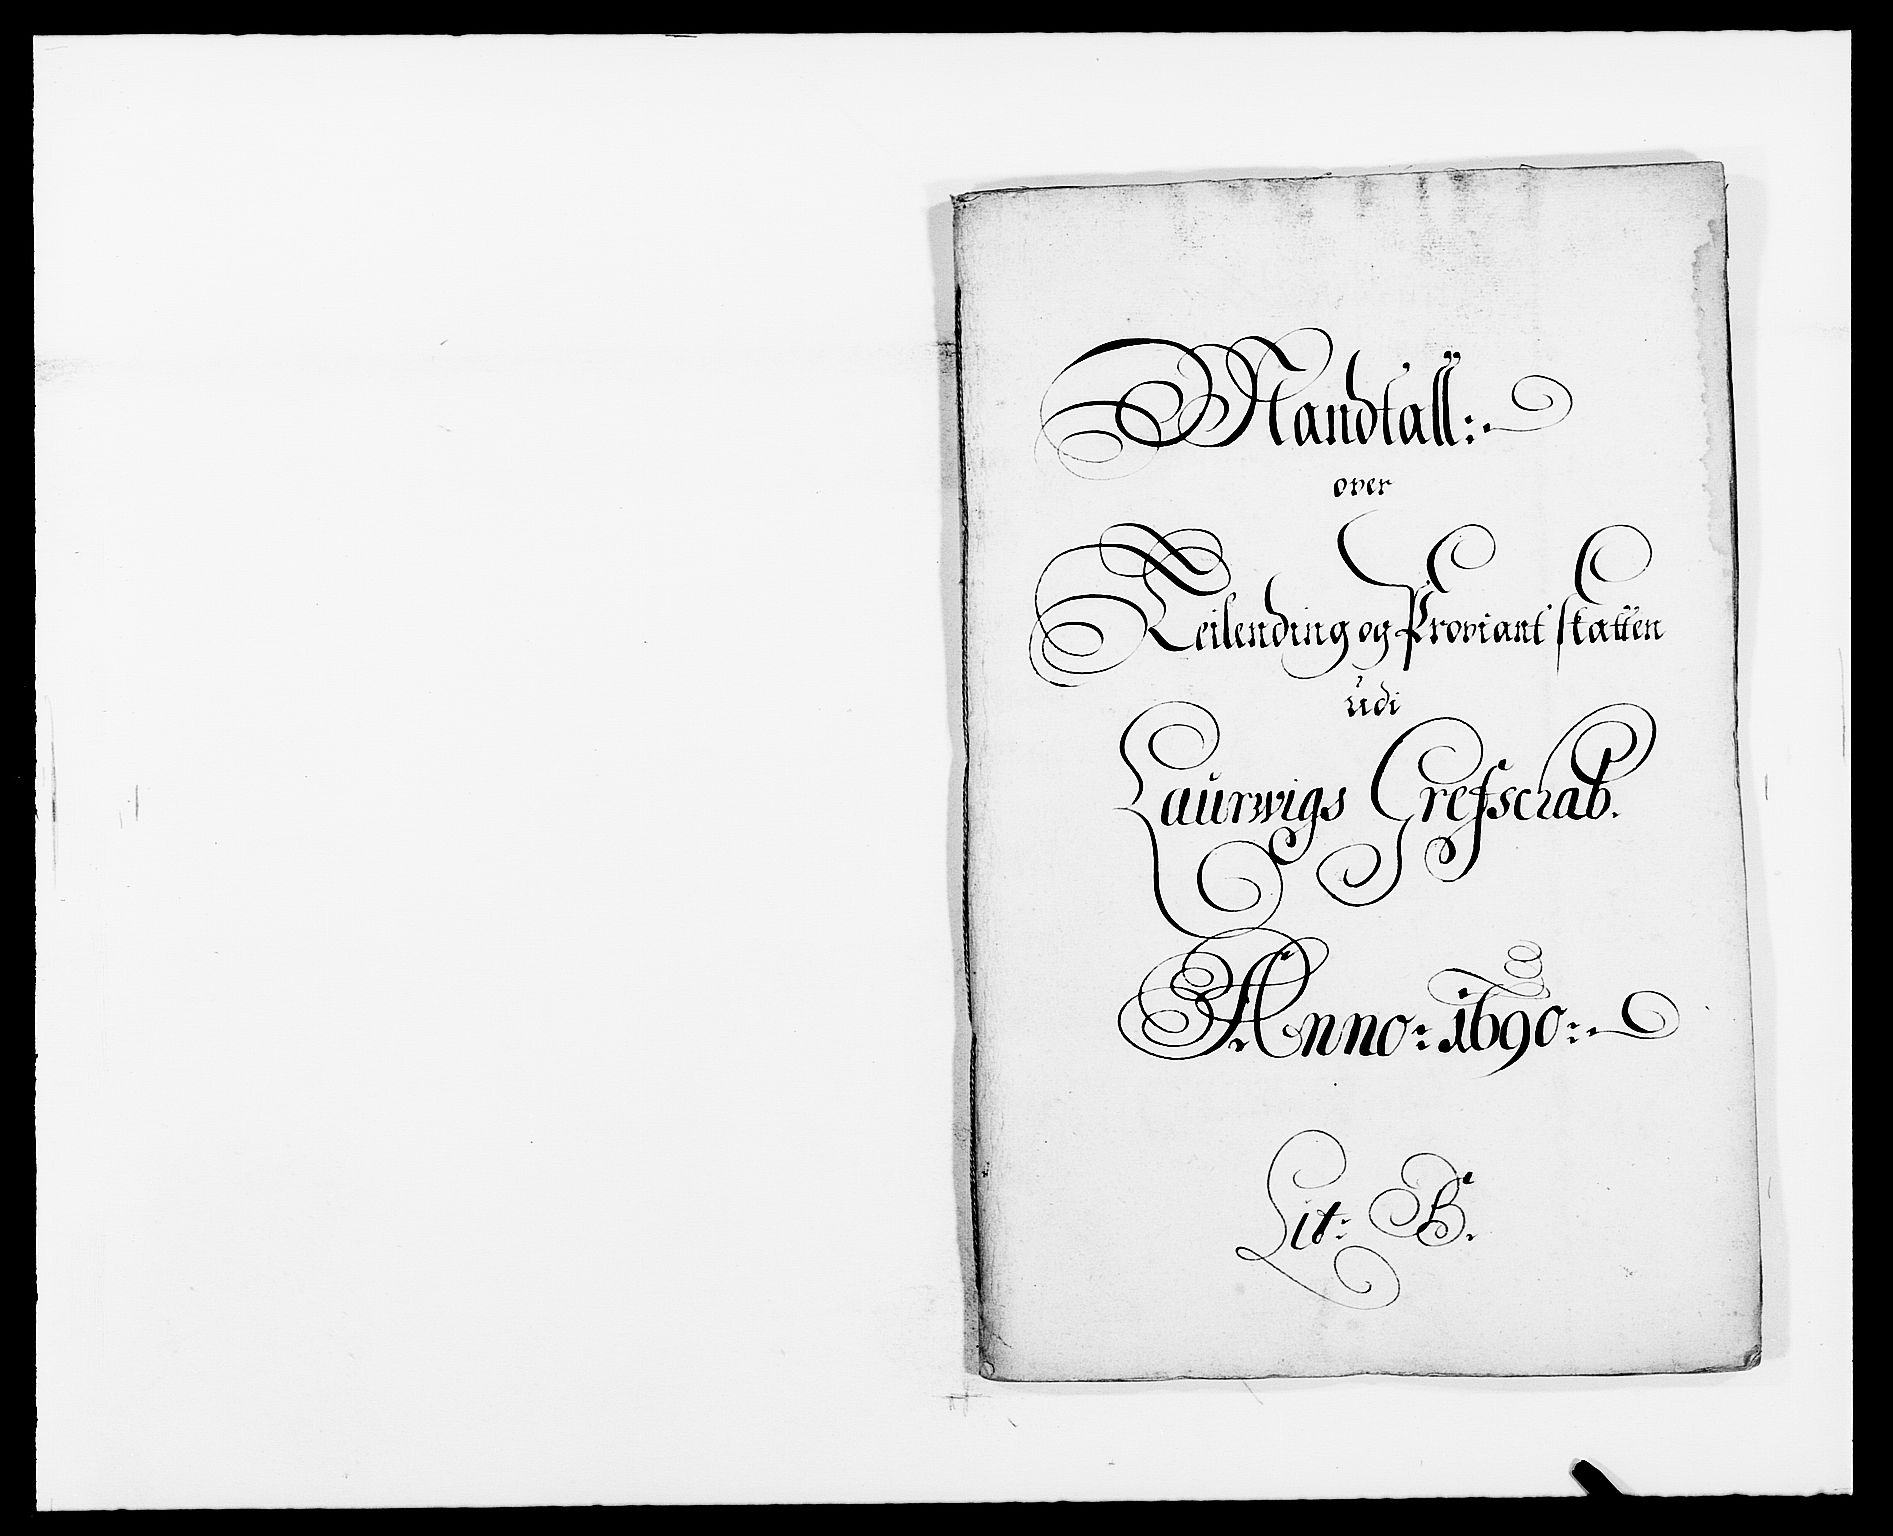 Mandtall:
over
Leilending og Proviant skatten
udi
Laurwigs Grefschab.
Anno: 1690:
Lit: B.